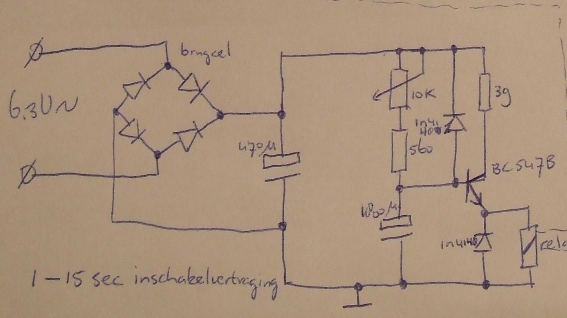 brugcel
6.3V~
470µ
10K
39
1n41
560
BC547B
1n4148
1-15 sec inschakelvertraging